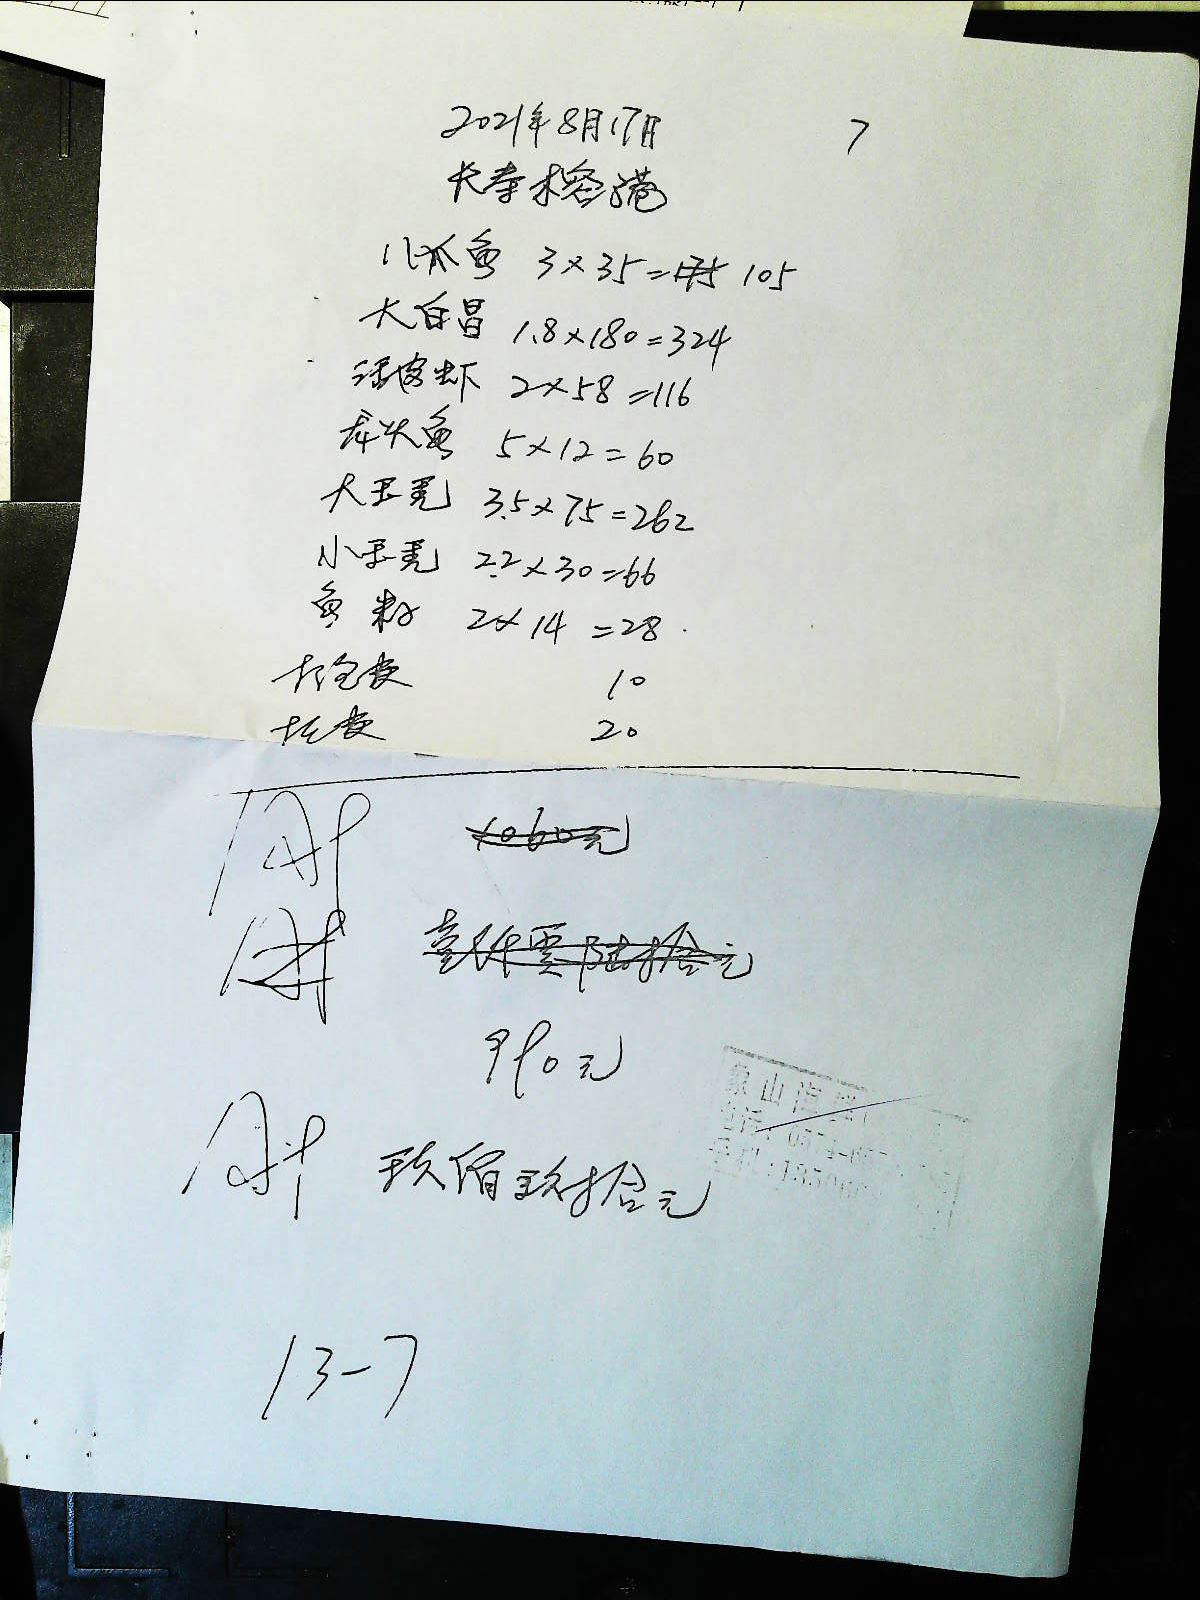 2021年8月17日 7
长寿榕港
八爪鱼 3×35=175 105
大白昌 1.8×180=324
活皮虾 2×58=116
龙头鱼 5×12=60
大玉秃 3.5×75=262
小玉秃 2.2×30=66
鱼籽 2×14=28
打包费 10
托费 20
1060元
壹仟零陆拾元
990元
玖佰玖拾元
象山
13-7